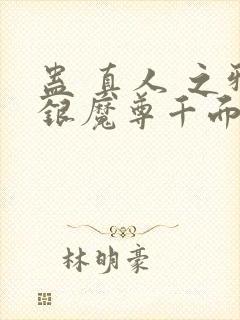 蛊真人之邪
银魔尊千而
林明豪